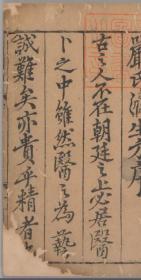 嚴氏濟生方序
古之人不在朝廷之上必居醫
卜之中雖然醫之為藝
誠難矣亦貴乎精者